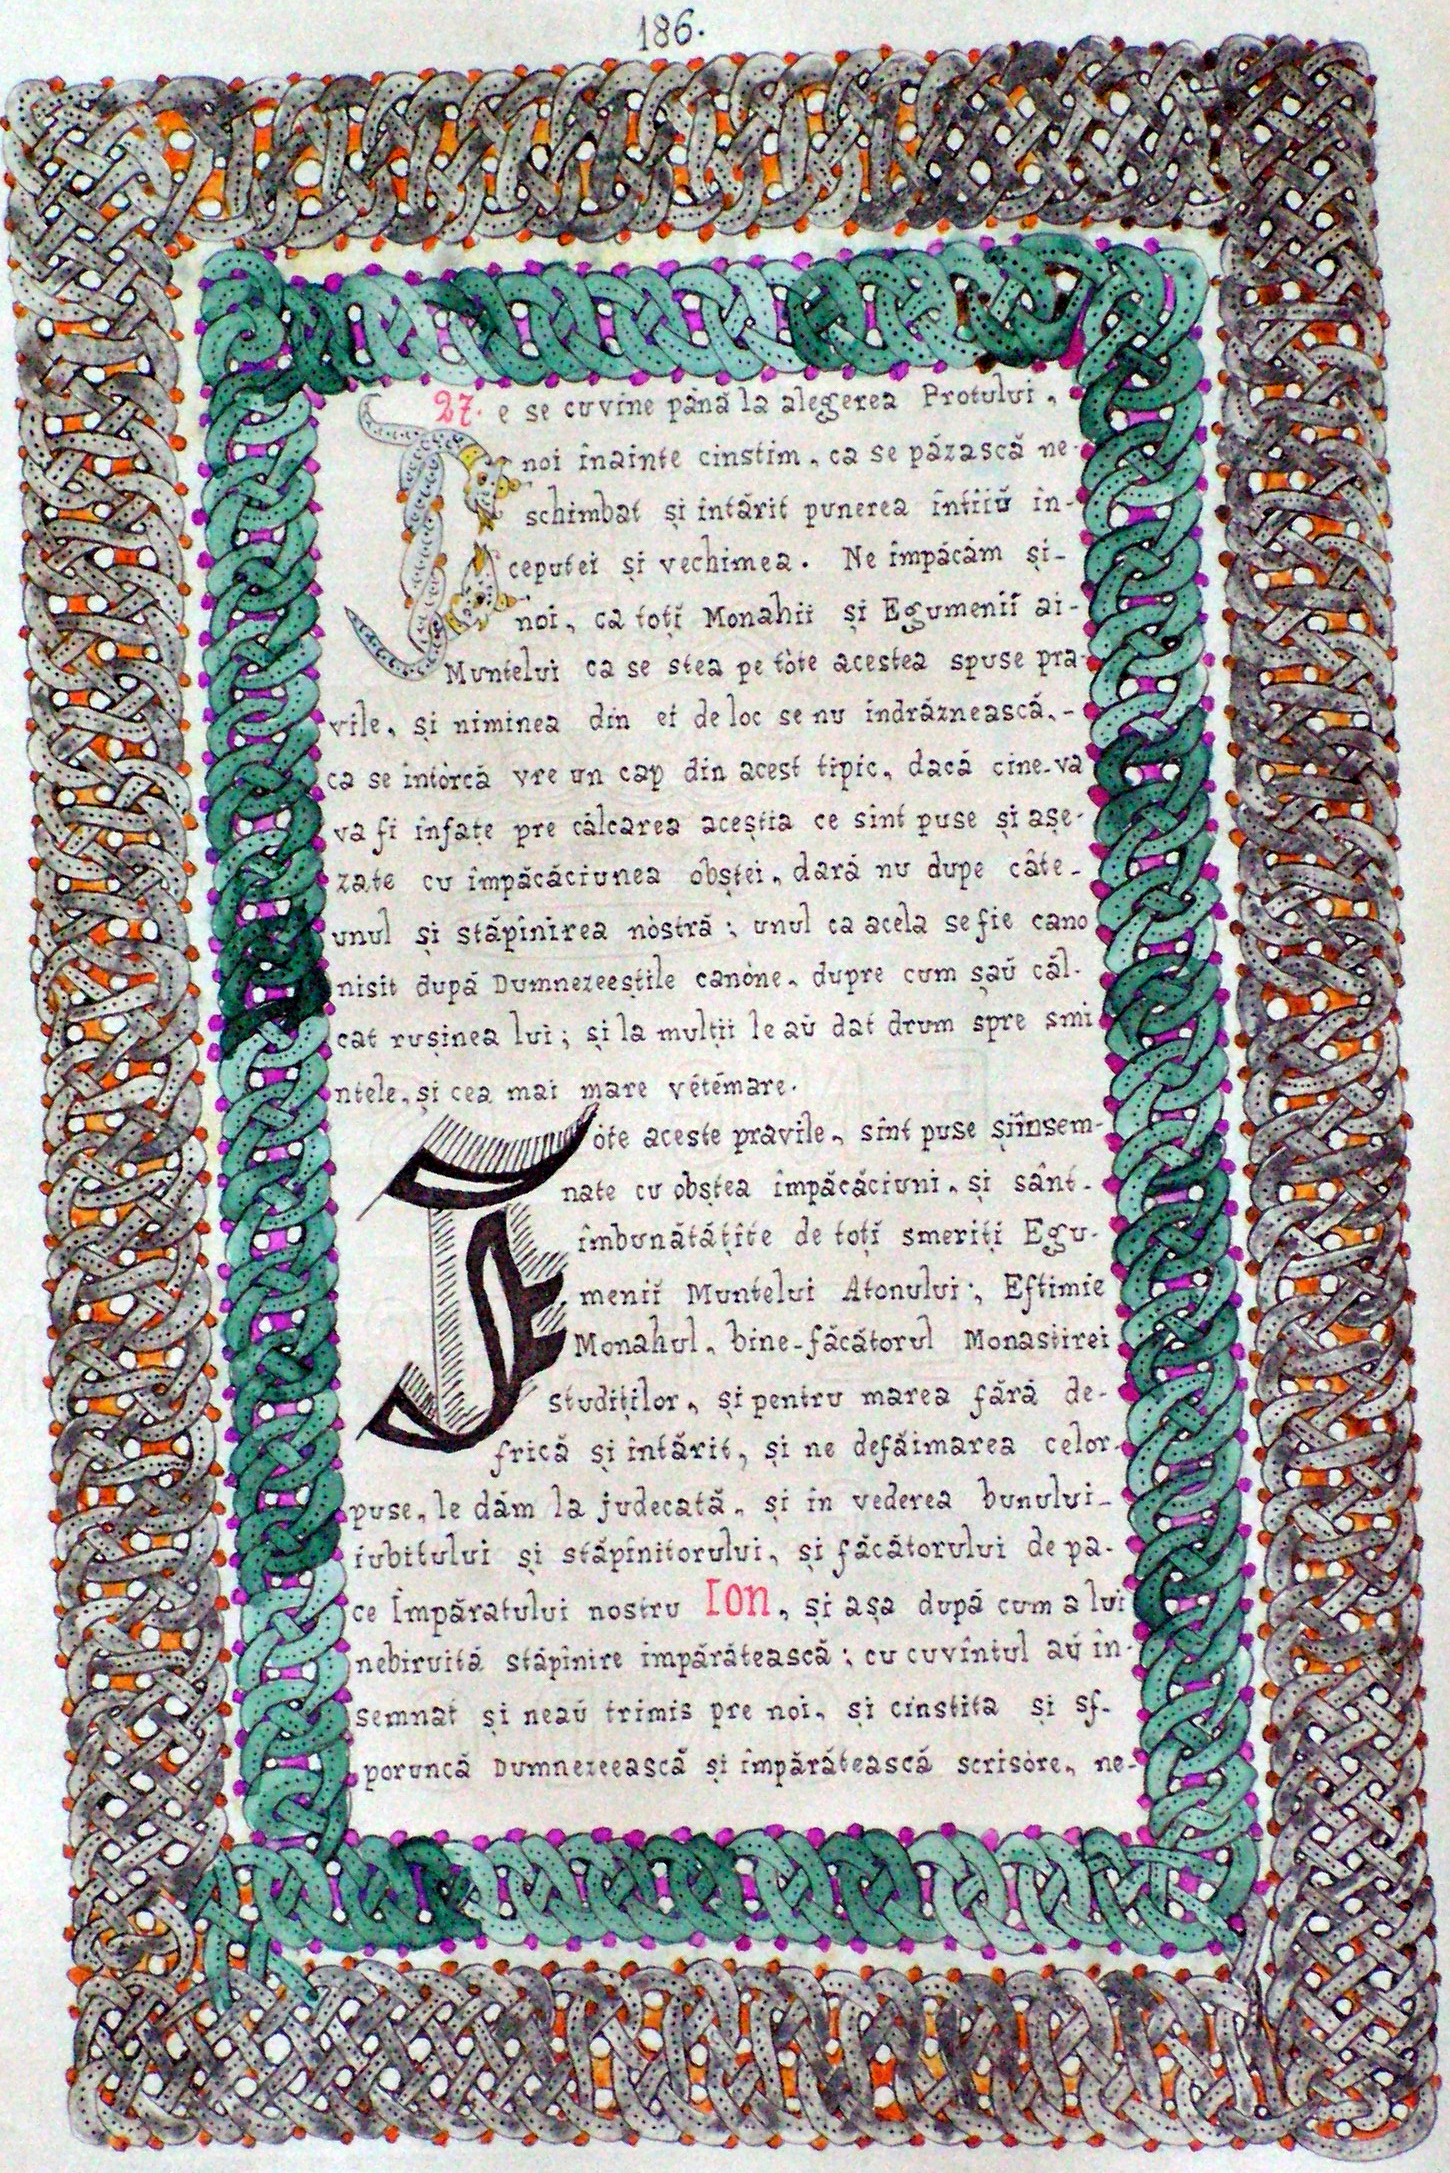 186.
27. Ce se cuvine până la alegerea Protului,
noi înainte cinstim, ca se păzască ne-
schimbat și întărit punerea întiiŭ în-
ceputei și vechimea. Ne împăcăm și-
noi, ca toți Monahii și Egumenii ai-
Muntelui ca se stea pe tòte acestea spuse pra-
vile, și niminea din ei de loc se nu îndrăznească,-
ca se întòrcă vre un cap din acest tipic, dacă cine-va
va fi înfațe pre călcarea aceștia ce sînt puse și așe-
zate cu împăcăciunea obștei, dară nu dupe câte-
unul și stăpînirea nòstră; unul ca acela se fie cano
nisit după Dumnezeeștile canòne, dupre cum șaŭ căl-
cat rușinea lui; și la mulții le aŭ dat drum spre smi
ntele, și cea mai mare vétémare.
Tòte aceste pravile, sînt puse șiînsem-
nate cu obștea împăcăciuni, și sânt-
îmbunătățite de toți smeriți Egu-
menii Muntelui Atonului; Eftimie
Monahul, bine-făcătorul Monastirei
Studiților, și pentru marea fără de-
frică și întărit, și ne defăimarea celor-
puse, le dăm la judecată, și în vederea bunului-
iubitului și stăpînitorului, și făcătorului de pa-
ce Împăratului nostru Ion, și așa după cum a lui
nebiruită stăpînire împărătească; cu cuvîntul aŭ în-
semnat și neaŭ trimis pre noi, și cinstita și sf.
poruncă Dumnezeească și împărătească scrisòre, ne-